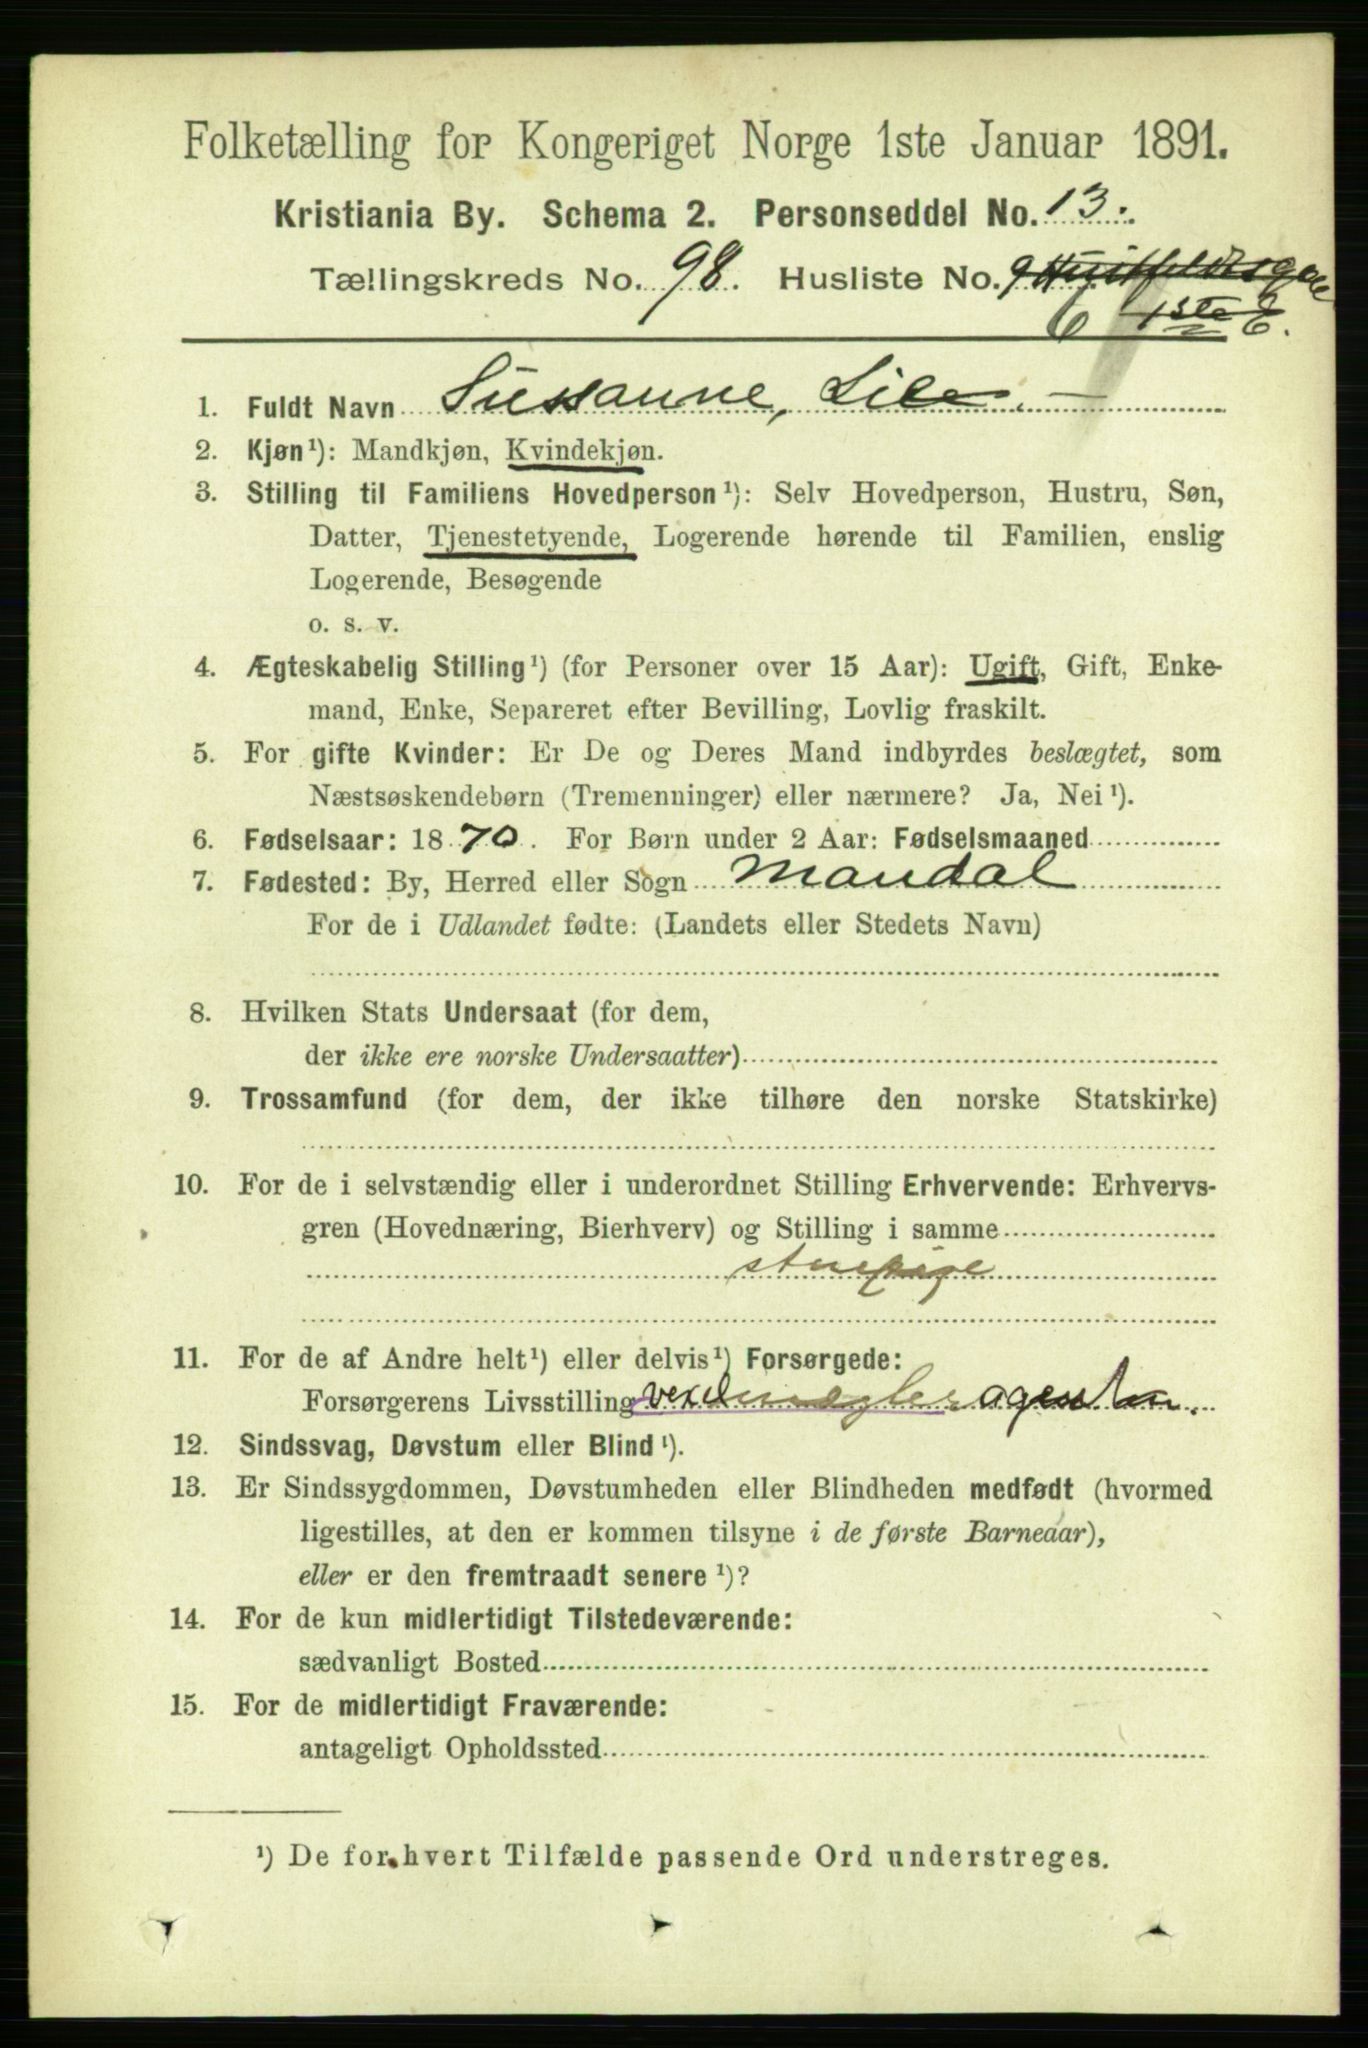 Folketælling for Kongeriget Norge 1ste Januar 1891.
Kristiania By. Schema 2. Personseddel No. 13.
Tællingskreds No. 98. Husliste No. 9 Huitfeldtsgade
6 1ste E.
1. Fuldt Navn Sussanne, Lile
2. Kjøn¹): Mandkjøn, Kvindekjøn.
3. Stilling til Familiens Hovedperson¹): Selv Hovedperson, Hustru, Søn,
Datter, Tjenestetyende, Logerende hørende til Familien, enslig
Logerende, Besøgende
o. s. v.
4. Ægteskabelig Stilling¹) (for Personer over 15 Aar): Ugift, Gift, Enke-
mand, Enke, Separeret efter Bevilling, Lovlig fraskilt.
5. For gifte Kvinder: Er De og Deres Mand indbyrdes beslægtet, som
Næstsøskendebørn (Tremenninger) eller nærmere? Ja, Nei¹).
6. Fødselsaar: 1870. For Børn under 2 Aar: Fødselsmaaned
7. Fødested: By, Herred eller Sogn Mandal
For de i Udlandet fødte: (Landets eller Stedets Navn)
8. Hvilken Stats Undersaat (for dem,
der ikke ere norske Undersaatter)
9. Trossamfund (for dem, der ikke tilhøre den norske Statskirke)
10. For de i selvstændig eller i underordnet Stilling Erhvervende: Erhvervs-
gren (Hovednæring, Bierhverv) og Stilling i samme
stuepige
11. For de af Andre helt¹) eller delvis¹) Forsørgede:
Forsørgerens Livsstilling
12. Sindssvag, Døvstum eller Blind¹).
13. Er Sindssygdommen, Døvstumheden eller Blindheden medfødt (hvormed
ligestilles, at den er kommen tilsyne i de første Barneaar),
eller er den fremtraadt senere¹)?
14. For de kun midlertidigt Tilstedeværende:
sædvanligt Bosted
15. For de midlertidigt Fraværende:
antageligt Opholdssted
¹) De for hvert Tilfælde passende Ord understreges.